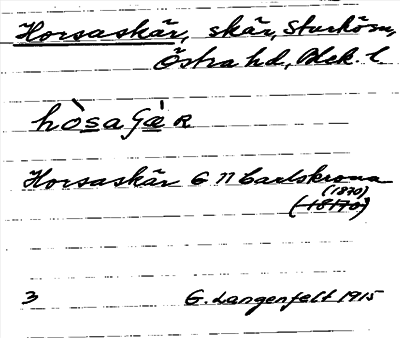 Horsaskär, skär, Sturkö sn,
Östra hd, Blek. l.
hòsaʃæ̀r
Horsaskär G 11 Carlskrona
(1870)
(1870)
3 G. Langenfelt 1915